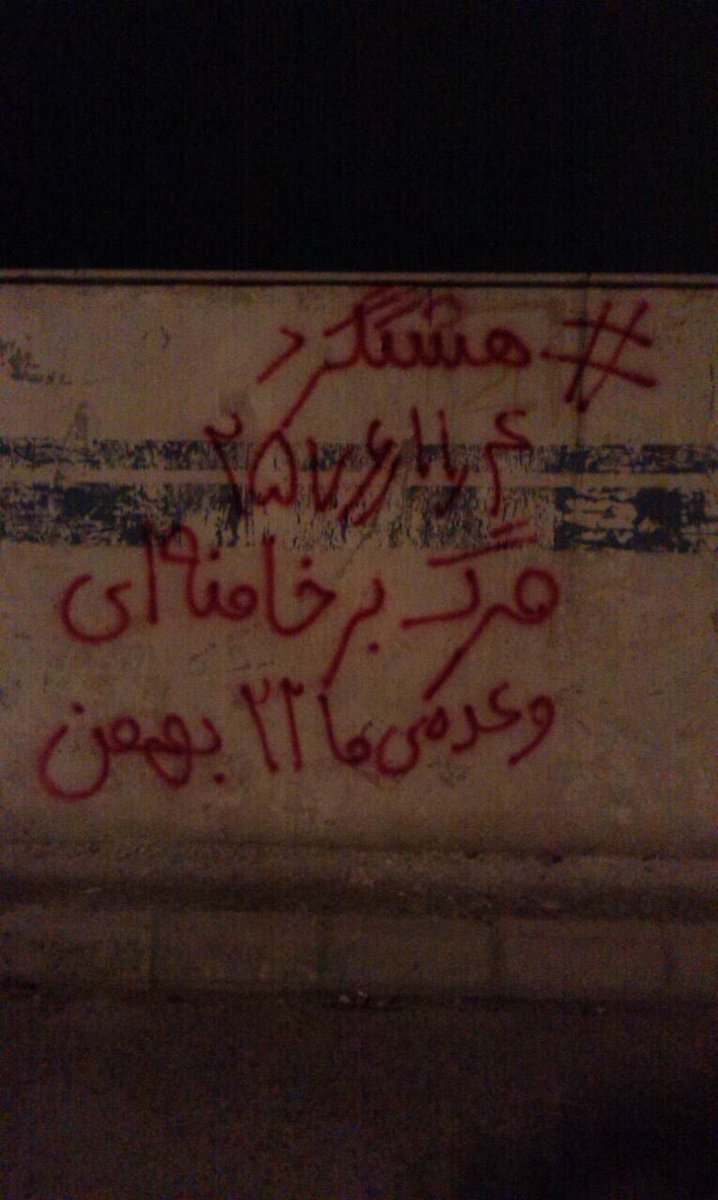 #هشتگرد
۲۵۷۶/۱۱/۴
مرگ بر خامنه ای
وعده ی ما ۲۲ بهمن